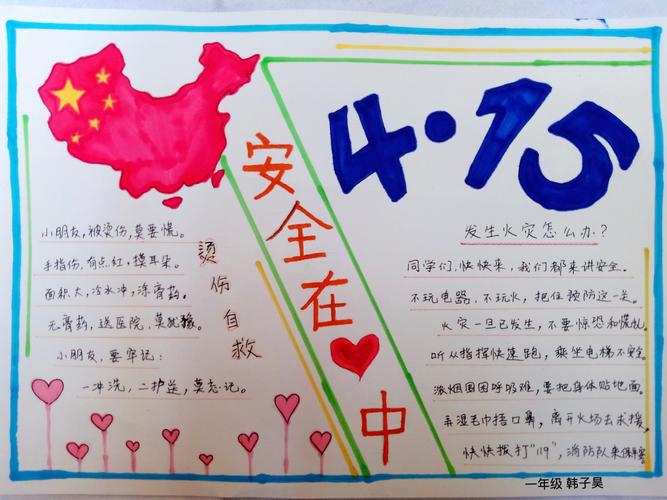 4·15
安全在
中
小朋友,被烫伤,莫要慌。
手指伤,有点红,摸耳朵。
面积大,冷水冲,涂膏药。
无膏药,送医院,莫犹豫。
小朋友,要牢记:
一冲洗,二护送,莫忘记。
烫伤自救
发生火灾怎么办?
同学们,快快来,我们都来讲安全。
不玩电器,不玩火,把住预防这一关。
火灾一旦已发生,不要惊恐和慌乱。
听从指挥快速跑,乘坐电梯不安全。
浓烟困困呼吸难,要把身体贴地面。
弄湿毛巾捂口鼻,离开火场去求援。
快快拨打"119",消防队来保平安
一年级 韩子昊